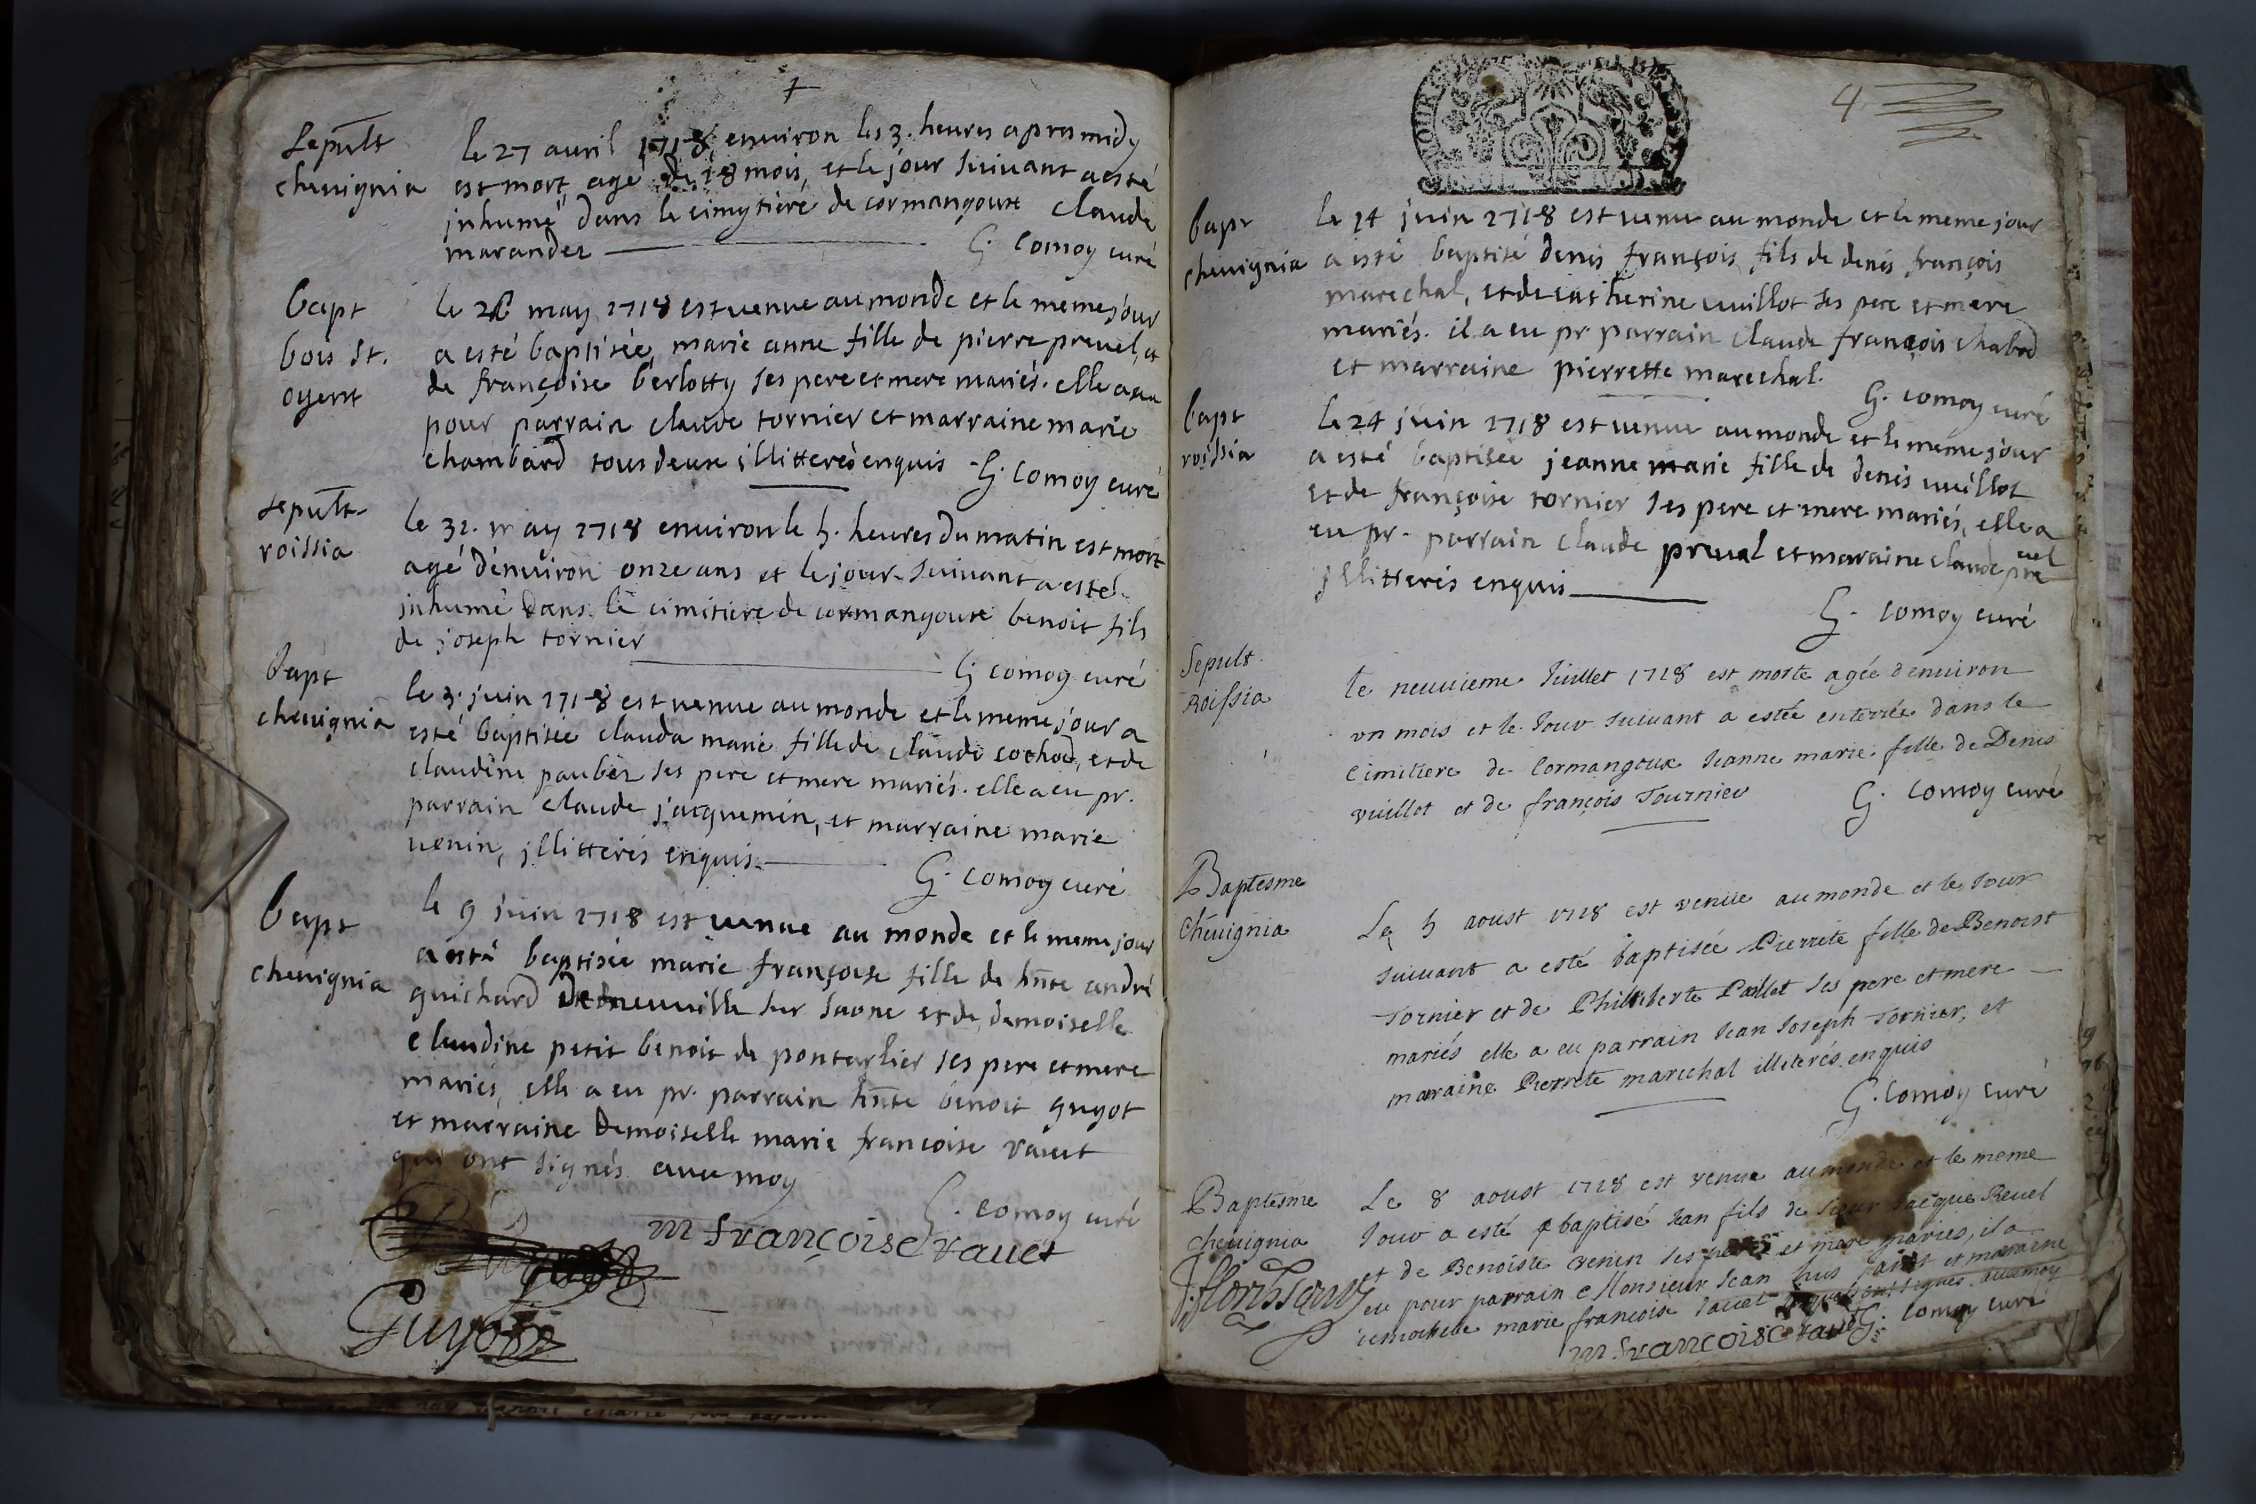 sepult
chevignia
le 27 avril 1718 environ les 3. heures apres midy
est mort agé de 18 mois, et le jour suivant a esté
jnhumé dans le cimytiere de cormangoux claude
marandez
G. comoy curé
bapt
bois st.
oyent
le may 1718 est venue au monde et le meme jour
a esté baptisée, marie anne fille de pierre prevel, et
de françoise berlotty ses pere et mere mariés. elle a eu
pour parrain claude tornier et marraine marie
chambard tous deux jllitterés enquis
G. comoy curé
sepult.
roissia
le 31. may 1718 environ le 5. heures du matin est mort
agé d'environ onze ans et le jour suivant a esté
jnhumé dans le cimitiere de cormangoux benoit fils
de joseph tornier
G comoy curé
bapt
chevignia
le 3. juin 1718 est venue au monde et le meme jour a
esté baptisée clauda marie fille de claude cochod, et de
claudine paubez ses pere et mere mariés. elle a eu pr.
parrain claude jacquemin, et marraine marie
venin, jllitterés enquis.
G. comoy curé
bapt
chevignia
le 9 juin 1718 est venue au monde et le meme jour
a esté baptisée marie françoise fille de hnte andré
guichard de neuville sur saone et de demoiselle
claudine petit benoit de pontarlier ses pere et mere
mariés, elle a eu pr. parrain hnte benoit guyot
et marraine demoiselle marie francoise vauet
qui ont signés avec moy
G. comoy curé
m francoise vauet
Guyot
4
bapt
chevignia
le 14 juin 1718 est venu au monde et le meme jour
a esté baptisé denis françois fils de denis françois
marechal, et de catherine vuillot ses pere et mere
mariés. il a eu pr parrain claude françois chabod
et marraine pierrette marechal.
G. comoy curé
bapt
roissia
le 24 juin 1718 est venue au monde et le meme jour
a esté baptisée jeanne marie fille de denis vuillot
et de françoise tornier ses pere et mere mariés, elle a
eu pr. parrain claude preval et maraine claude pre
vel
jllitterés enquis
G. comoy curé
Sepult.
Roissia
Le neuvieme Juillet 1718 est morte agée d'environ
un mois et le Jour suivant a estée enterrée dans le
Cimitiere de Cormangoux Jeanne marie fille de Denis
vuillot et de françois Tournier
G. comoy curé
Baptesme
Chevignia
Le 5 aoust 1718 est venue au monde et le Jour
suivant a esté baptisée Pierrete fille de Benoist
Tornier et de Philiberte Pollet ses pere et mere
mariés elle a eu parrain Jean Joseph Tornier, et
maraine Pierrete marechal illiterés enquis
G. comoy curé
Baptesme
chevignia
Le 8 aoust 1718 est venue au monde et le meme
Jour a esté baptisé Jean fils de Jacque Revel
et de Benoiste venin ses pere et mere mariés, il a
eu pour parrain Monsieur Jean et maraine
demoiselle marie francoise vauet signes avec moy
G. comoy curé
m francoise vauet